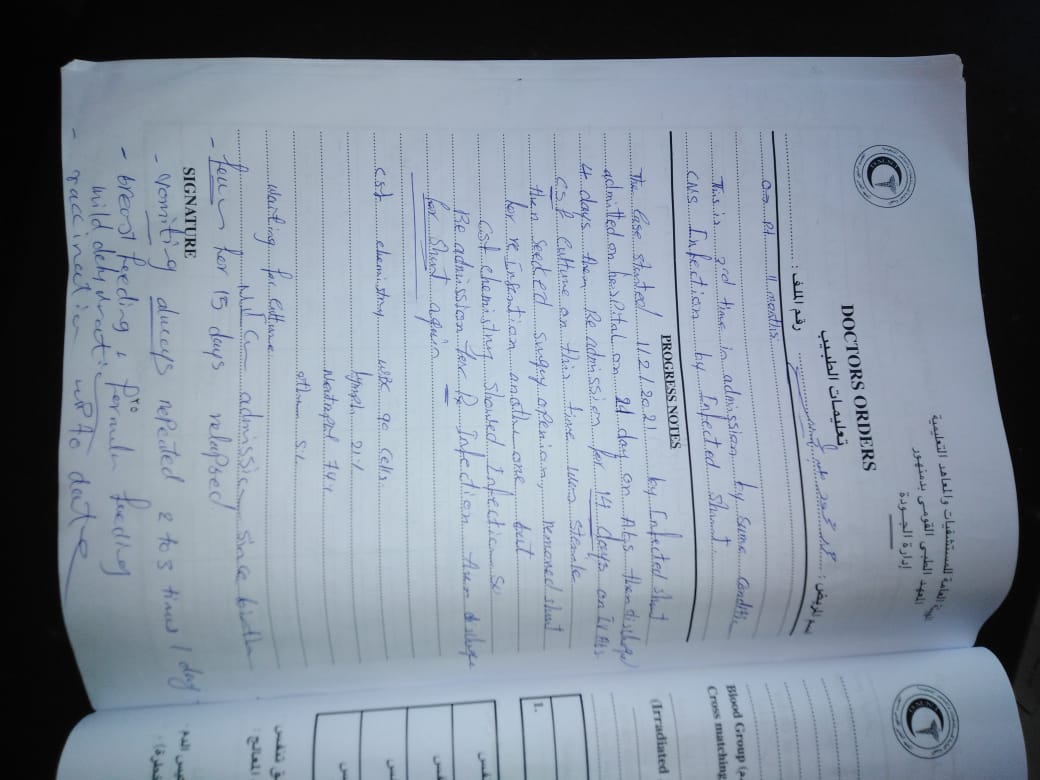 الهيئة العامة للمستشفيات والمعاهد التعليمية
المعهد الطبي القومي بدمنهور
إدارة الجودة
DOCTORS ORDERS
تعليمات الطبيب
اسم المريض : محمد محمود
رقم الملف :
pt 11 months
This is 3rd time in admission by same condition
CNS Infection by Infected Shunt
PROGRESS NOTES
The Case started 11/2/2021 by Infected shunt
admitted on hospital on 21 day on Abs then discharged
4 days then Re admission for 14 days on IV Abs
CSF Culture on this time was sterile
then seeked surgery openion, removed shunt
for re insertion another one but
CSF chemistry showed Infection so
Re admission for Infection then discharge
for shunt again
CSF chemistry WBC 90 cells
lymph 21%
Neutrophil 74%
others 5%
waiting for culture
NICU admission since birth
- fever for 15 days relapsed
SIGNATURE
- vomiting always repeated 2 to 3 times / day
- breast feeding & formula feeding
mild dehydration
- vaccination up to date
Blood Group
Cross matching
(Irradiated
1.